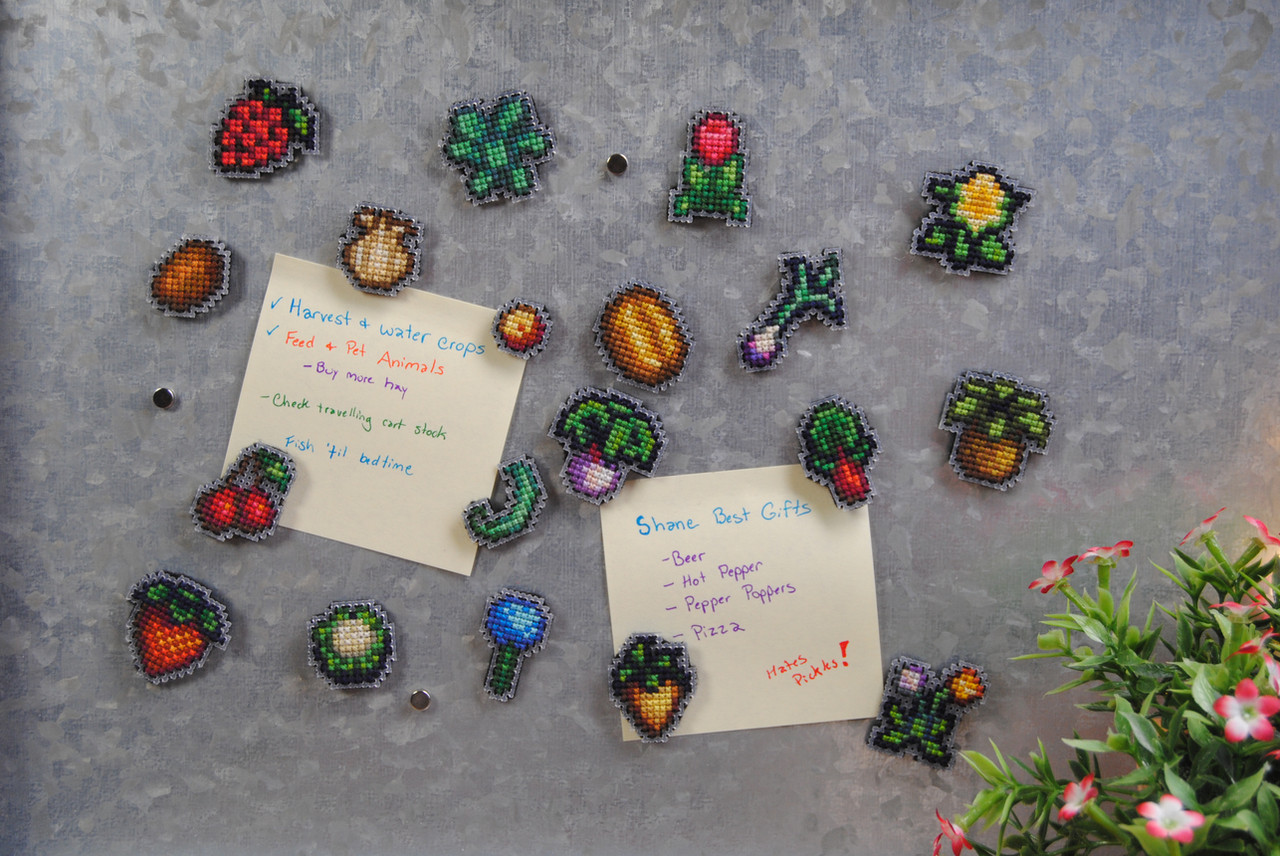 ✓ Harvest & water crops
✓ Feed & Pet Animals
- Buy more hay
- Check travelling cart stock
Fish 'til bedtime
Shane Best Gifts
- Beer
- Hot Pepper
- Pepper Poppers
- Pizza
Hates
Pickles!